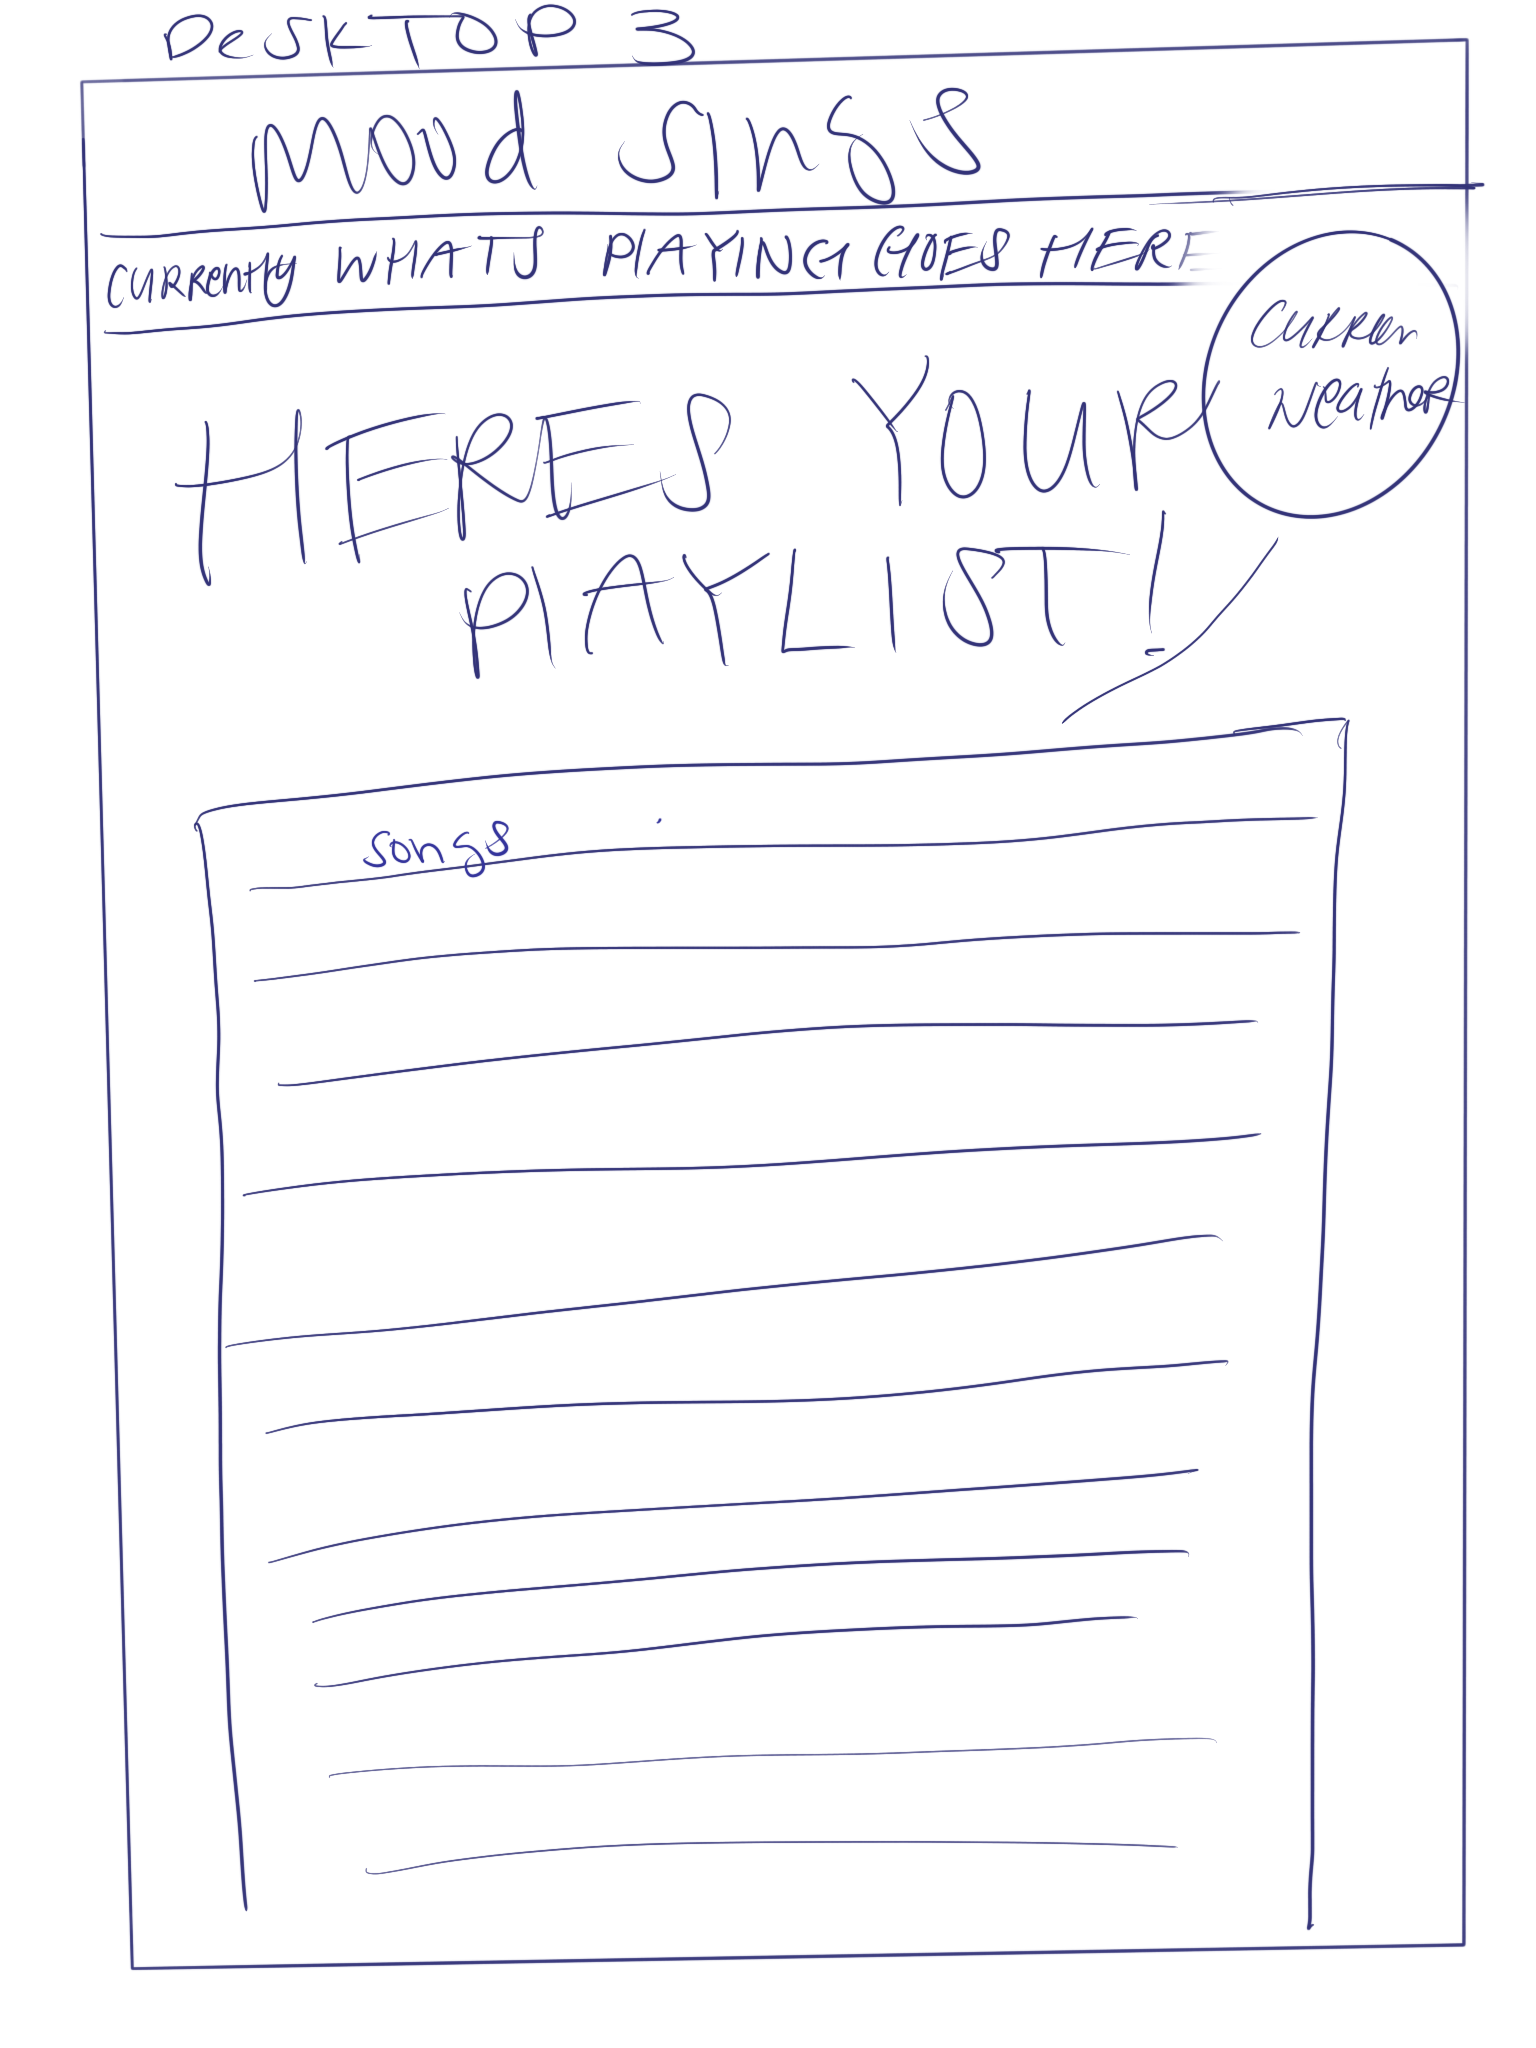 DESKTOP 3
Mood Sings
CURRently WHATS PLAYING GOES HERE
Curren
Weather
HERES YOUR
PLAYLIST!
Songs